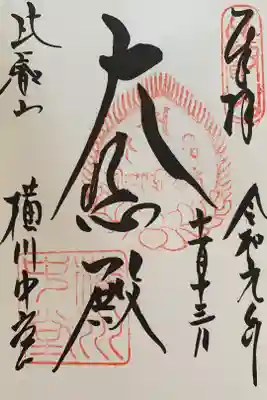 奉拝
令和元年
十一月十三日
大悲殿
比叡山
横川中堂